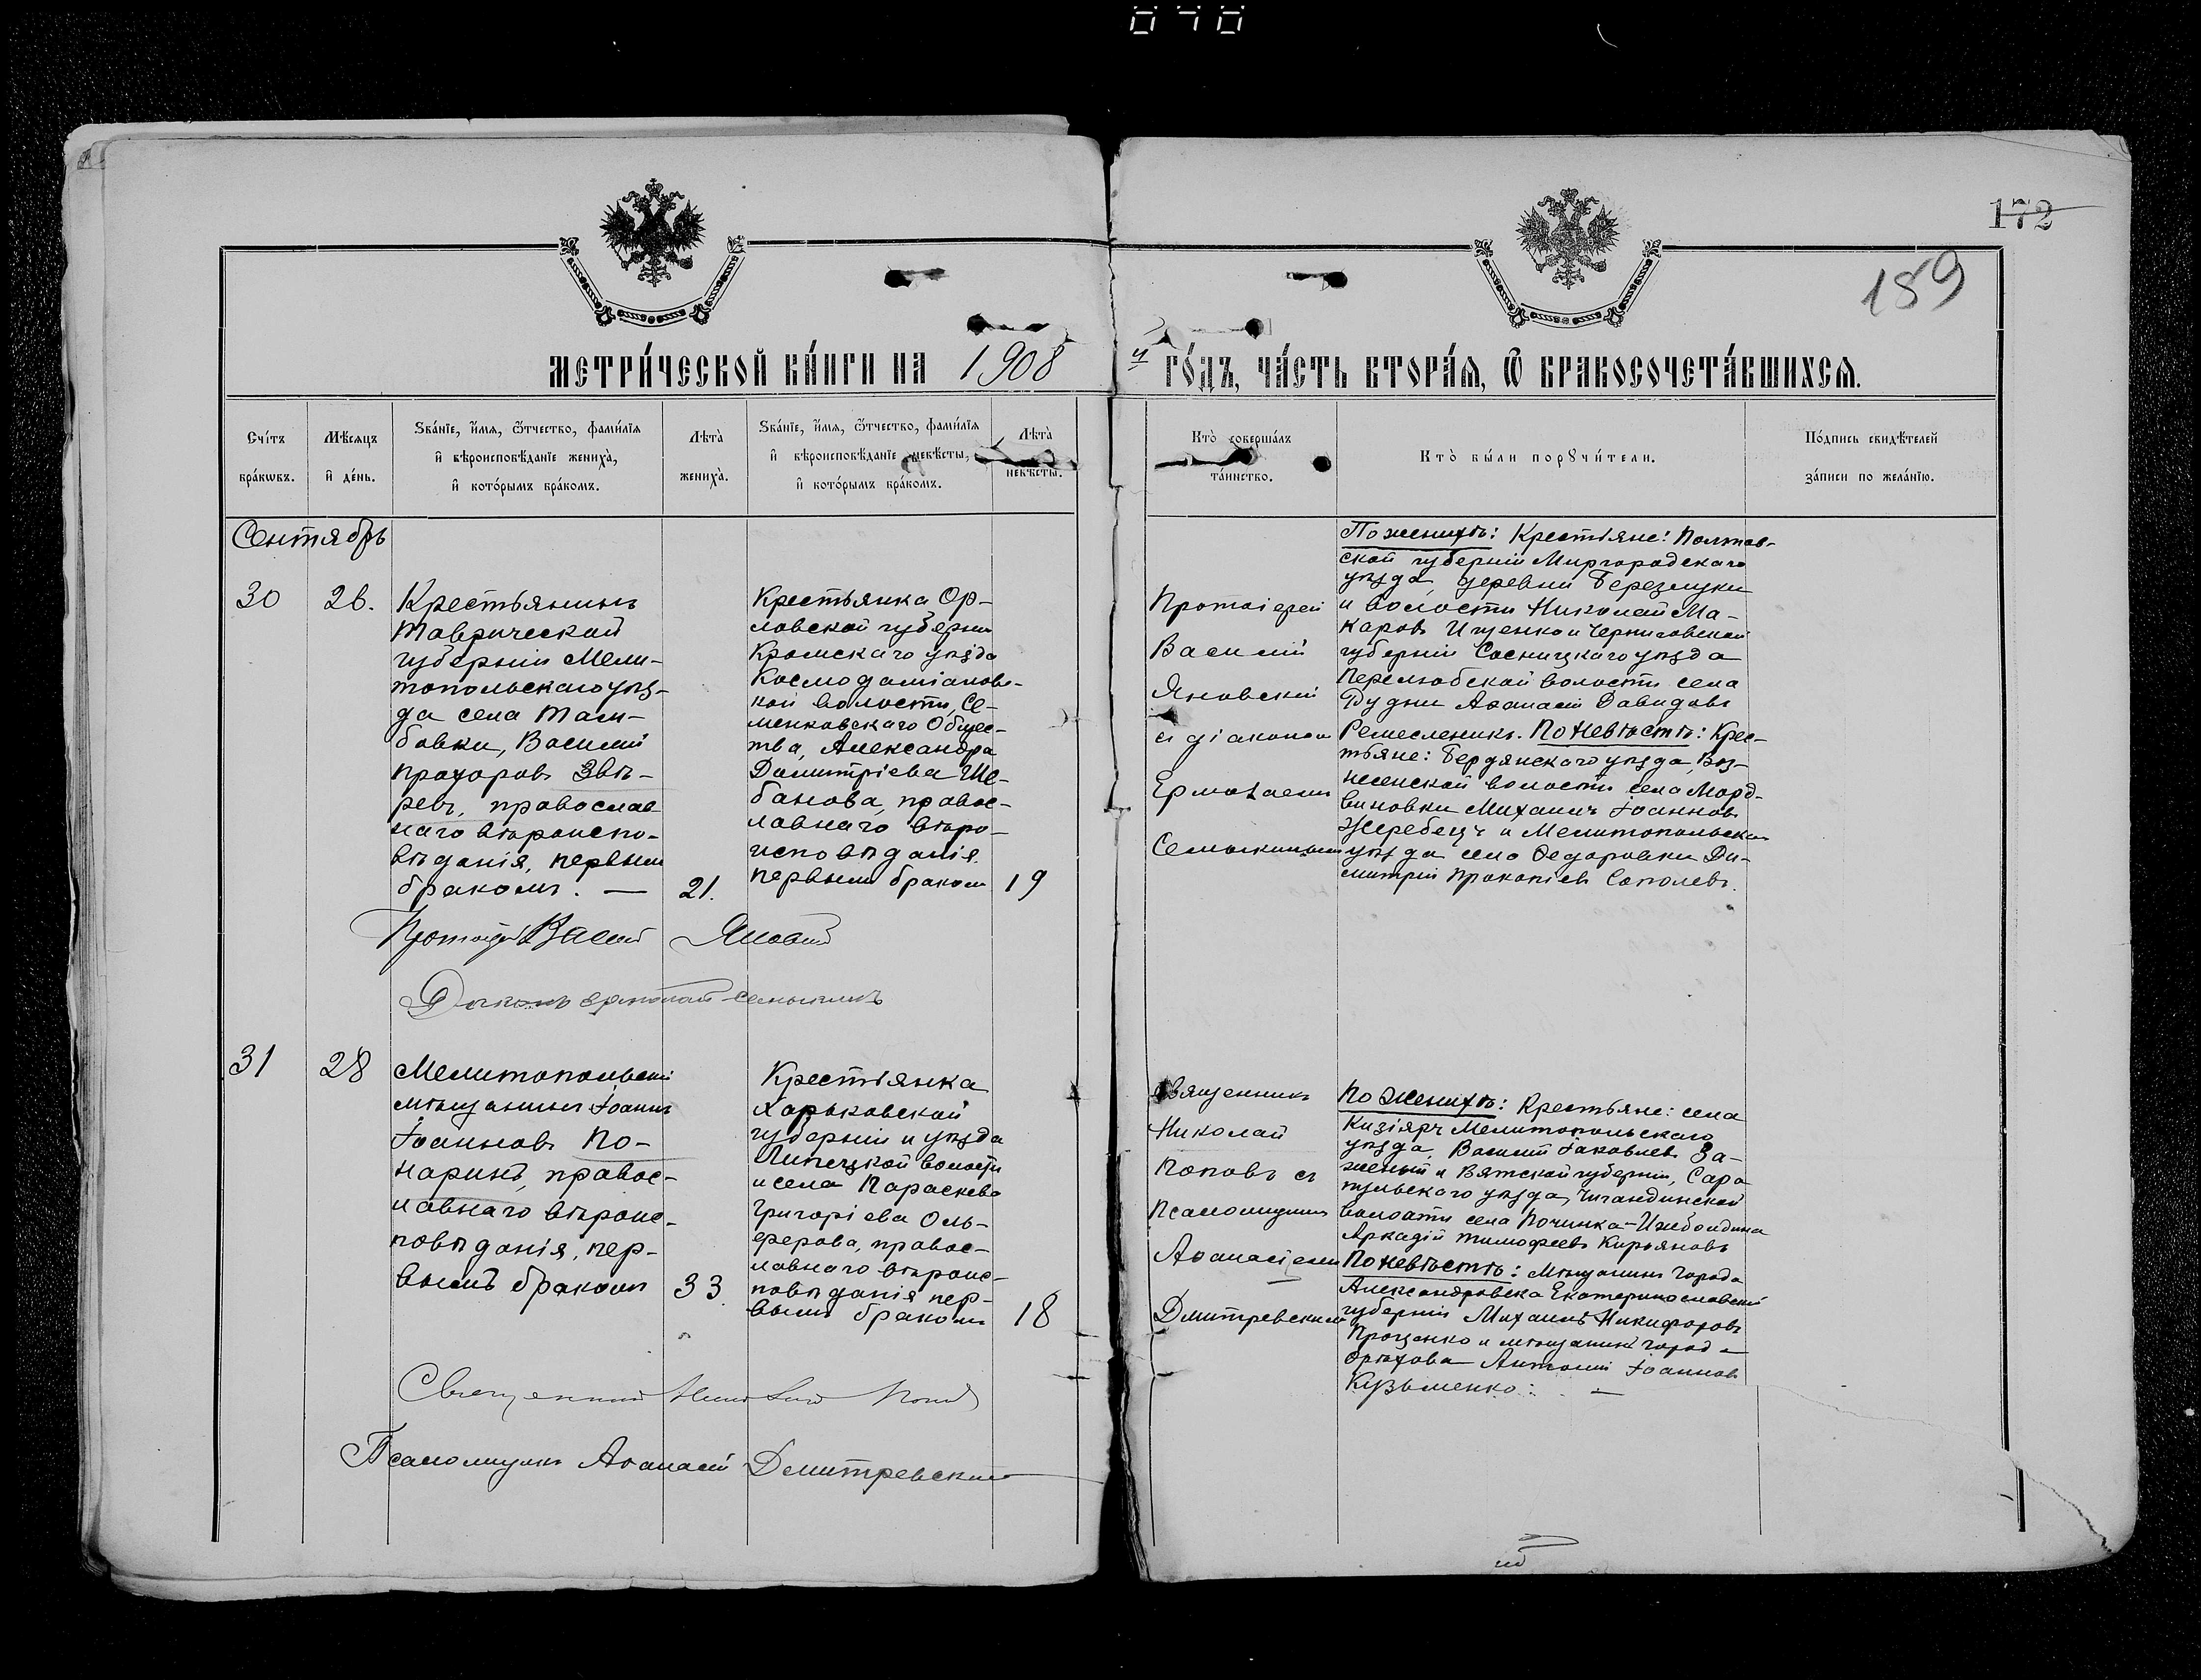 070
172
189
МЕТРИ́ЧЕСКОЙ КНИ́ГИ НА 1908 й ГО́ДЪ, ЧА́СТЬ ВТОРА́Я, Ѿ БРАКОСОЧЕТА́ВШИХСЯ.
Сче́тъ
бра́кωвъ.
Мѣ́сяцъ
и҆ де́нь.
Ѕва́нїе, и҆́мя, ѻ҆́тчество, фами́лїя
и҆ вѣроисповѣ́данїе жениха̀,
и҆ кото́рымъ бра́комъ.
Лѣта̀
жениха̀.
Ѕва́нїе, и҆́мя, ѻ҆́тчество, фами́лїя
и҆ вѣроисповѣ́данїе невѣ́сты,
и҆ кото́рымъ бра́комъ.
Лѣта̀
невѣ́сты.
Кто̀ соверша́лъ
та́инство.
Кто̀ бы́ли порꙋчи́тели.
По́дпись свидѣ́телей
за́писи по жела́нїю.
Сентябрь
30
26.
Крестьянинъ
Таврической
губерніи Мели-
топольскаго уѣз-
да села Там-
бовки, Василій
Прохоровъ Звѣ-
ревъ, православ
наго вѣроиспо-
вѣданія, первымъ
бракомъ. —
21.
Крестьянка Ор-
ловской губерніи
Кромскаго уѣзда
Космодаміановс-
кой волости, Се-
менковскаго Общес-
тва, Александра
Димитріева Ше-
банова, правос-
лавнаго вѣро-
исповѣданія.
первымъ бракомъ
19
Протоіерей
Василій
Яновскій
съ діакономъ
Ермолаемъ
Семыкинымъ
По женихѣ: Крестьяне: Полтав-
ской губерніи Миргородскаго
уѣзда, деревни Березлуки
и волости Николай Ма-
каровъ Ищенко и Черниговской
губерніи Сосницкаго уѣзда
Перелюбской волости села
Рудни Аѳанасій Давидовъ
Ремесленикъ. По невѣстѣ: Крес-
тьяне: Бердянскаго уѣзда, Воз-
несенской волости села Морд-
виновки Михаилъ Іоанновъ
Жеребецъ и Мелитопольскаго
уѣзда села Ѳедоровки Ди-
митрій Прокопіевъ Сополевъ.
Протоіерей Василій Яновскій
Діаконъ Ермолай Семыкинъ
31
28
Мелитопольскій
мѣщанинъ Іоаннъ
Іоанновъ По-
наринъ, правос-
лавнаго вѣроис-
повѣданія, пер-
вымъ бракомъ
33.
Крестьянка
Харьковской
губерніи и уѣзда
Липецкой волости
и села Параскева
Григоріева Оль-
ферова, правос-
лавнаго вѣроис-
повѣданія пер-
вымъ бракомъ
18
Священникъ
Николай
Поповъ съ
Псаломщикомъ
Аѳанасіемъ
Дмитревскимъ
По женихѣ: Крестьяне: села
Кизіяръ Мелитопольскаго
уѣзда, Василій Іаковлевъ За-
женый и Вятской губерніи, Сара
пульскаго уѣзда, Чигандинской
волости села Починка-Ижболдина
Аркадій Тимофеевъ Кирьяновъ
По невѣстѣ: Мѣщанинъ города
Александровска Екатеринославской
губерніи Михаилъ Никифоровъ
Проценко и мѣщанинъ города
Орѣхова Антоній Іоанновъ
Кузьменко. —
Священникъ Николай Поповъ
Псаломщикъ Аѳанасій Дмитревскій